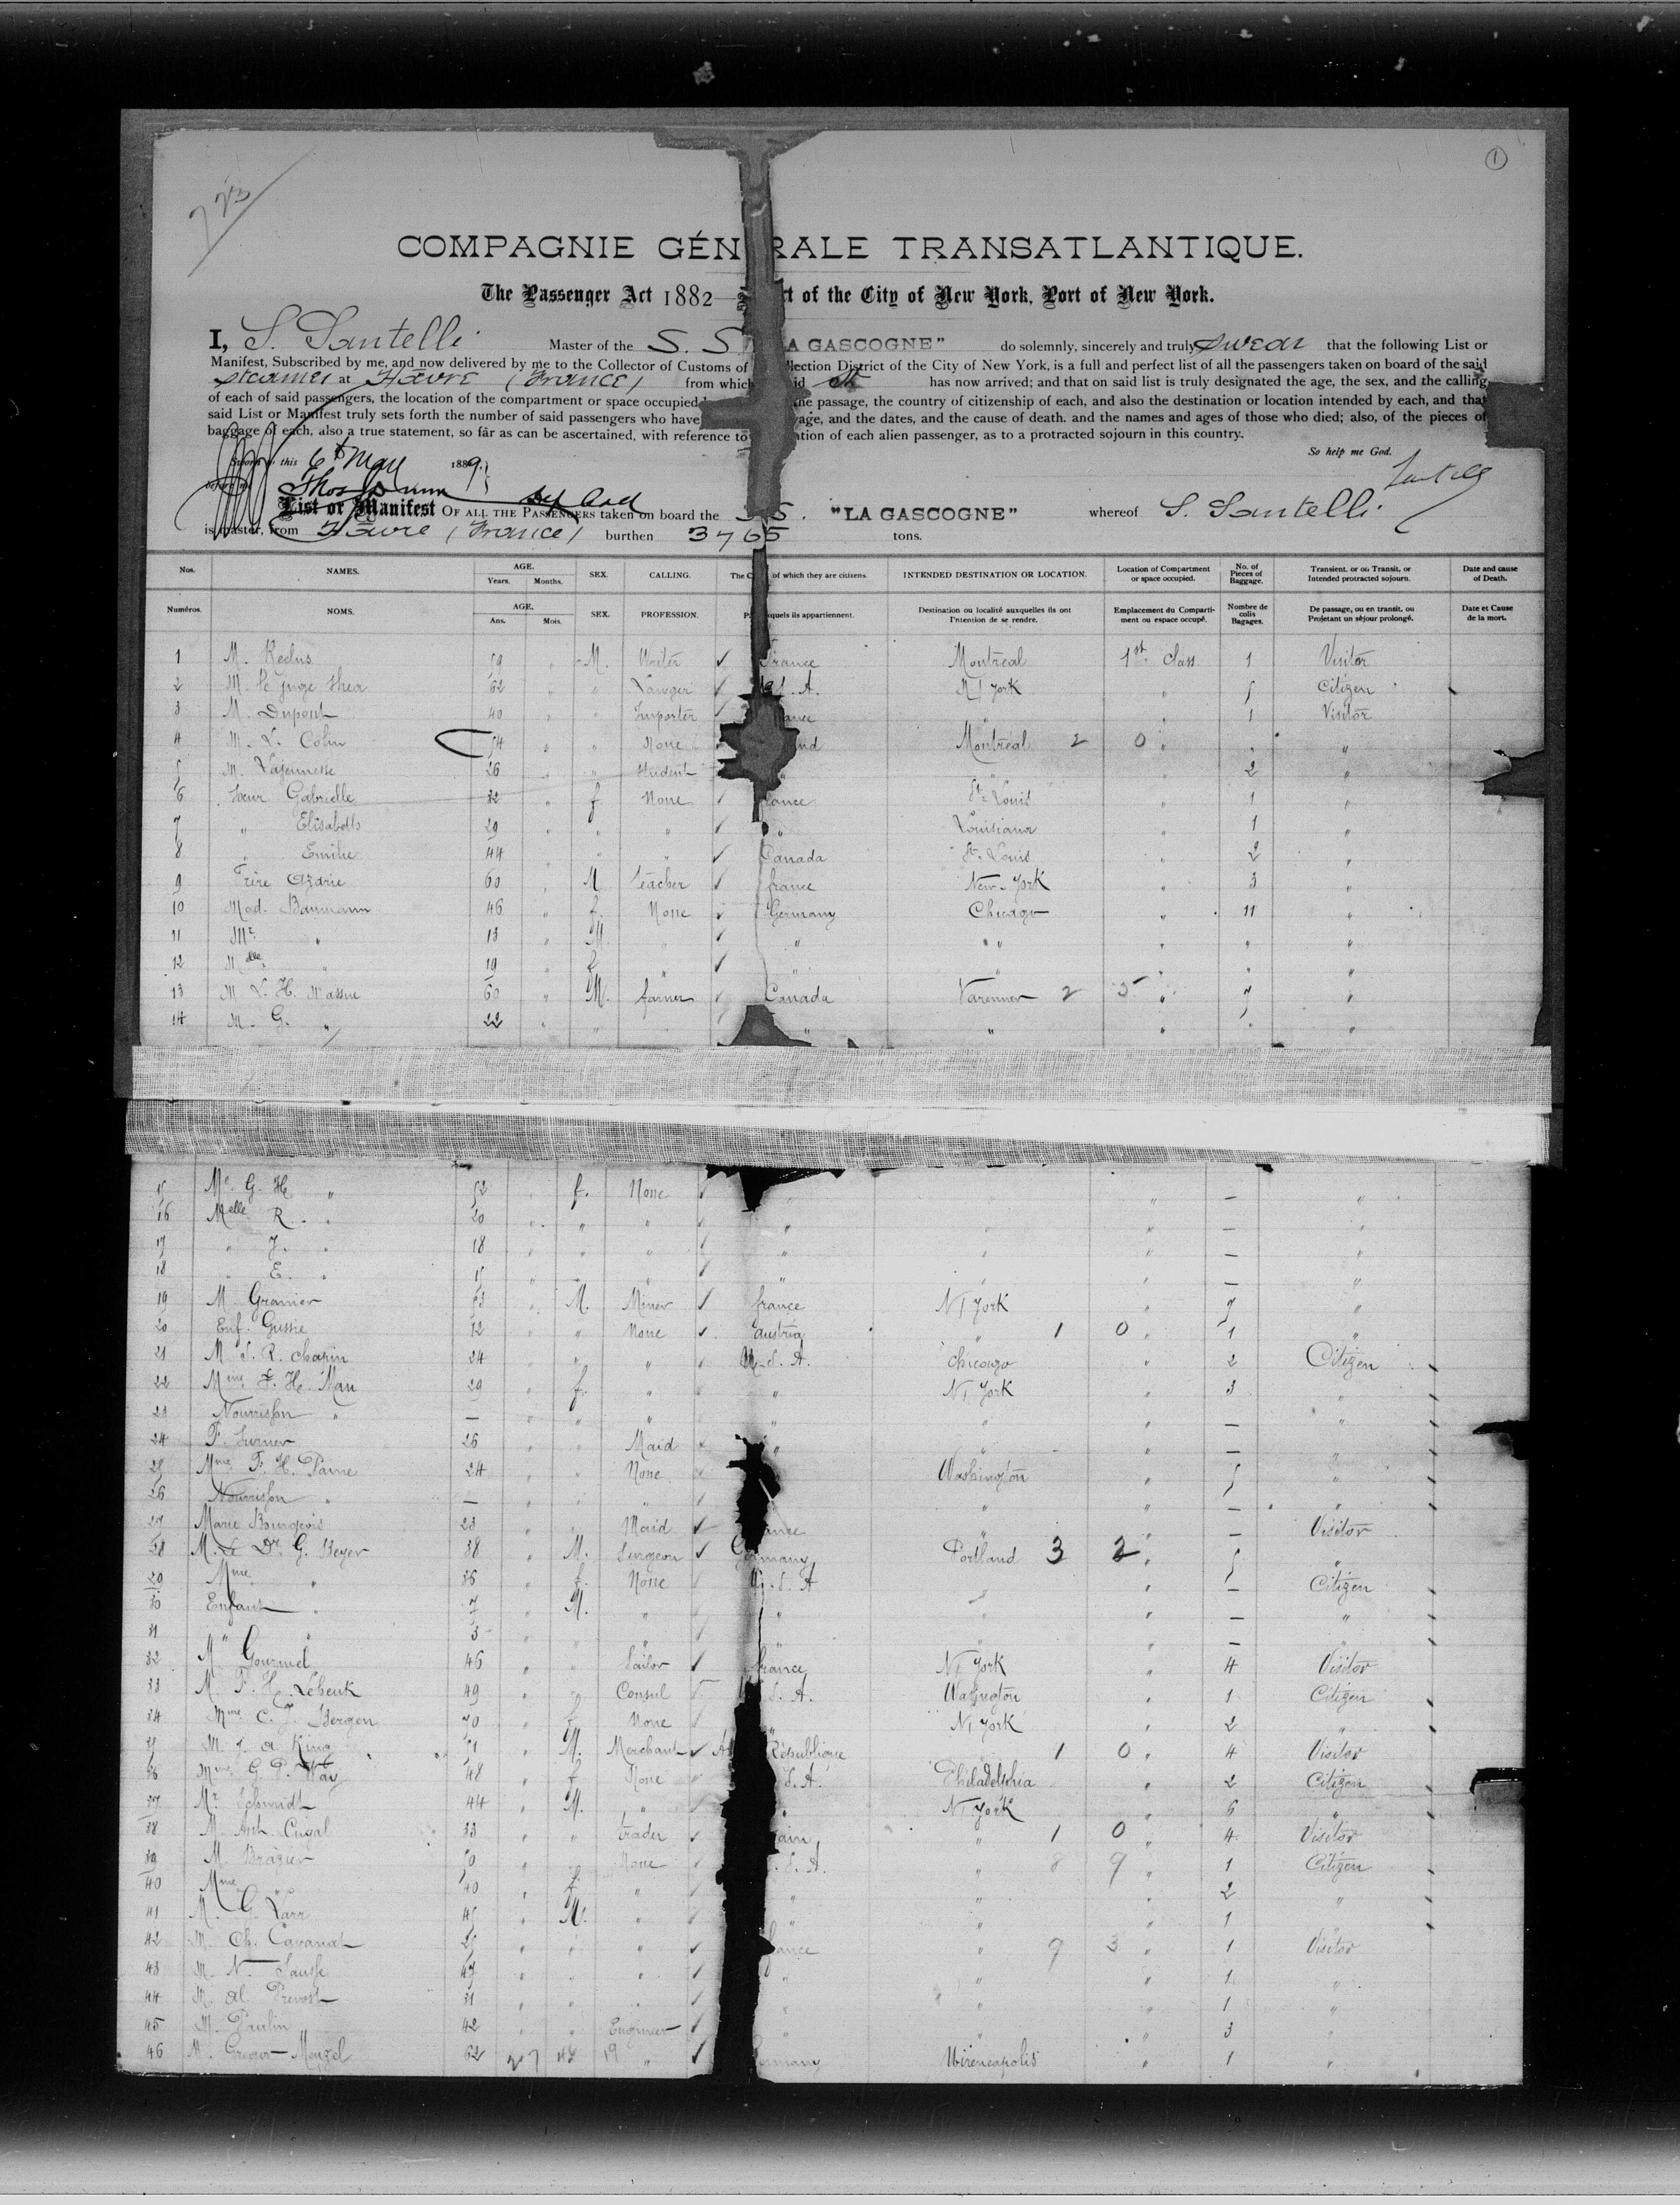 1
723
COMPAGNIE GÉN RALE TRANSATLANTIQUE.
The Passenger Act 1882— rt of the City of New York, Port of New York.
I, S. Santelli Master of the S. S. A GASCOGNE" do solemnly, sincerely and truly swear that the following List or
Manifest, Subscribed by me, and now delivered by me to the Collector of Customs of lection District of the City of New York, is a full and perfect list of all the passengers taken on board of the said
steamer at Havre (France) from which id has now arrived; and that on said list is truly designated the age, the sex, and the calling
of each of said passengers, the location of the compartment or space occupied he passage, the country of citizenship of each, and also the destination or location intended by each, and that
said List or Manifest truly sets forth the number of said passengers who have age, and the dates, and the cause of death. and the names and ages of those who died; also, of the pieces of
baggage of each, also a true statement, so far as can be ascertained, with reference to tion of each alien passenger, as to a protracted sojourn in this country.
So help me God.
Sworn to this 6th May 1889
before me
List or Manifest OF ALL THE PASSENGERS taken on board the S.S. "LA GASCOGNE" whereof S. Santelli
is master, from Havre (France) burthen 3765 tons.
Nos. NAMES. AGE. Years. Months. SEX. CALLING. The C of which they are citizens. INTENDED DESTINATION OR LOCATION. Location of Compartment or space occupied. No. of Pieces of Baggage. Transient, or on Transit, or Intended protracted sojourn. Date and cause of Death.
Numéros. NOMS. AGE. Ans. Mois. SEX. PROFESSION. P squels ils appartiennent. Destination ou localité auxquelles ils ont l'intention de se rendre. Emplacement du Comparti-ment ou espace occupé. Nombre de colis Bagages. De passage, ou en transit, ou Projetant un séjour prolongé. Date et Cause de la mort.
1 M. Reclus 59 " M. Writer ✓ France Montreal 1st Class 1 Visitor
2 M. le juge Shea 62 " " Lawyer ✓ U.S.A. N/ York " 5 Citizen
3 M. Dupont 40 " " Importer ✓ ance " " 1 Visitor
4 M. L. Colin 54 " " None nd Montreal 2 0 " " "
5 M. Lajeunesse 26 " " Student " " " 2 "
6 Sœur Gabrielle 32 " f None ✓ france St. Louis " 1 "
7 " Elisabeth 29 " " " ✓ " Louisiana " 1 "
8 " Emilie 44 " " " ✓ Canada St. Louis " 2 "
9 Frère Azarie 60 " M Teacher ✓ france New-York " 3 "
10 Mad. Baumann 46 " f. None ✓ Germany Chicago " 11 "
11 Mr. " 13 " M. " ✓ " " " " "
12 Mlle " 19 " f " ✓ " " " " "
13 M L. H. Massue 60 " M. farmer ✓ Canada Varennes 2 5 " 7 "
14 M. G. " 22 " " " " " "
15 Me G. H. " 52 " f. None ✓ " " " — "
16 Melle R. " 20 " " " ✓ " " " — "
17 " J. " 18 " " " ✓ " " " — "
18 " E. " 15 " " " ✓ " " " — "
19 M Granier 53 " M. Miner ✓ france N/ York " 7 "
20 Enf. Gussie 12 " " None ✓ Austria " 1 0 " 1 "
21 M S. R. Chapin 24 " " " ✓ U.S.A. Chicago " 2 Citizen
22 Mme F. H. Man 29 " f. " " " N/ York " 3 "
23 Nourrisson " — " " " " " " — "
24 F. Turner 26 " " Maid " " " — "
25 Mme F. H. Paine 24 " " None " Washington " 5 "
26 Nourrisson " — " " " ✓ " " — "
27 Marie Bourgeois 23 " " Maid ✓ ance " " — Visitor
28 M. le Dr G. Beyer 38 " M. Surgeon ✓ Germany Portland 3 2 " 5 "
29 Mme " 36 " f. None U.S.A " " — Citizen
30 Enfant " 7 " M. " " " " — "
31 " " 3 " " " " " " — "
32 M Gourmel 46 " " Sailor ✓ france N/ York " 4 Visitor
33 M. F. H. 49 " " Consul S.A. Washington " 1 Citizen
34 Mme C. J. Bergen 70 " f None " N/ York " 2 "
35 M. J. A. King 51 " M. Merchant ✓ République " 1 0 " 4 Visitor
36 Mme G. P. Way 48 " f None S.A. Philadelphia " 2 Citizen
37 Mr. Schmidt 44 " M. " " N/ York " 6 "
38 M. Ant. Cugal 33 " " trader ✓ ain " 1 0 " 4 Visitor
39 M. Brazier 50 " " None S.A. " 8 9 " 1 Citizen
40 Mme " 40 " f. " " " " 2 "
41 M. G. 45 " M. " " " " 1 "
42 M. Ch. Cavanat 25 " " " ✓ france " 9 3 " 1 Visitor
43 M. N. 47 " " " ✓ " " " 1 "
44 M. Al. Prevost 31 " " " ✓ " " " 1 "
45 M. Paulin 42 " " Engineer ✓ " " " 3 "
46 M. Menzel 62 27 19 " ✓ rmany Minneapolis " 1 "